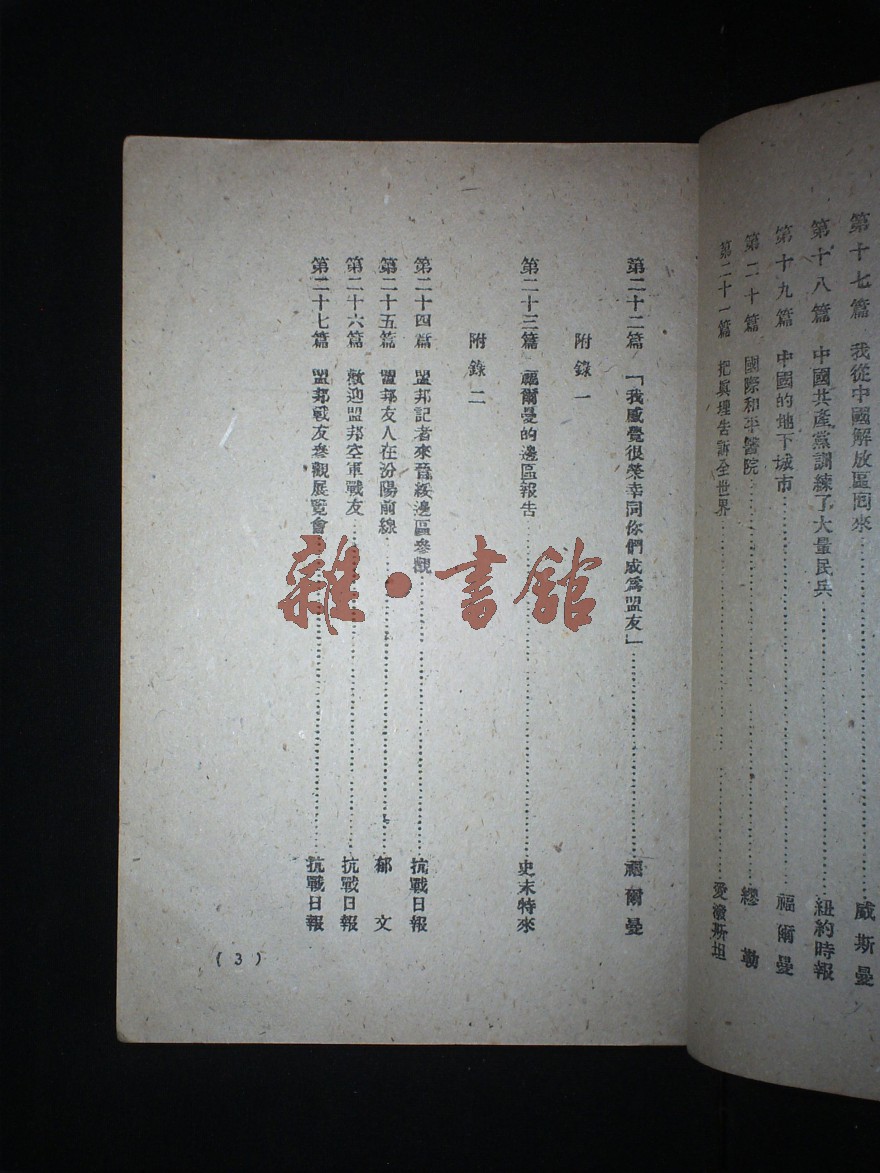 第十七篇 我從中國解放區回來……威斯曼
第十八篇 中國共產黨訓練了大量民兵……紐約時報
第十九篇 中國的地下城市……福爾曼
第二十篇 國際和平醫院……繆勒
第二十一篇 把眞理告訴全世界……愛潑斯坦
第二十二篇 「我感覺很榮幸同你們成爲盟友」……福爾曼
附錄一
第二十三篇 福爾曼的邊區報告……史末特來
附錄二
第二十四篇 盟邦記者來晉綏邊區參觀……抗戰日報
第二十五篇 盟邦友人在汾陽前線……郁文
第二十六篇 歡迎盟邦空軍戰友……抗戰日報
第二十七篇 盟邦戰友參觀展覽會……抗戰日報
(3)
雜·書館